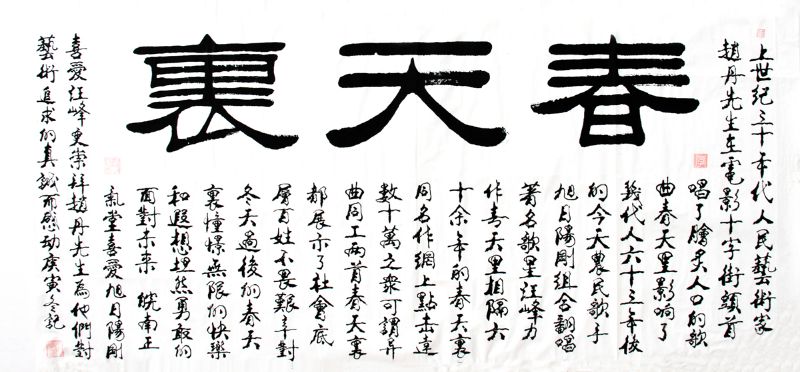 春天裏
上世纪三十年代人民藝術家
趙丹先生在電影十字街頭首
唱了膾炙人口的歌
曲春天里影响了
幾代人六十三年後
的今天農民歌手
旭日陽剛組合翻唱
著名歌星汪峰力
作春天里相隔六
十余年的春天裏
同名作網上點击達
數十萬之衆可謂异
曲同工两首春天裏
都展示了社會底
層百姓不畏艱辛對
冬天過後的春天
裏憧憬無限的快樂
和遐想坦然勇敢的
面對未来 皖南正
氣堂喜愛旭日陽剛
喜愛汪峰更崇拜趙丹先生為他們對
藝術追求的真誠而感动庚寅冬記